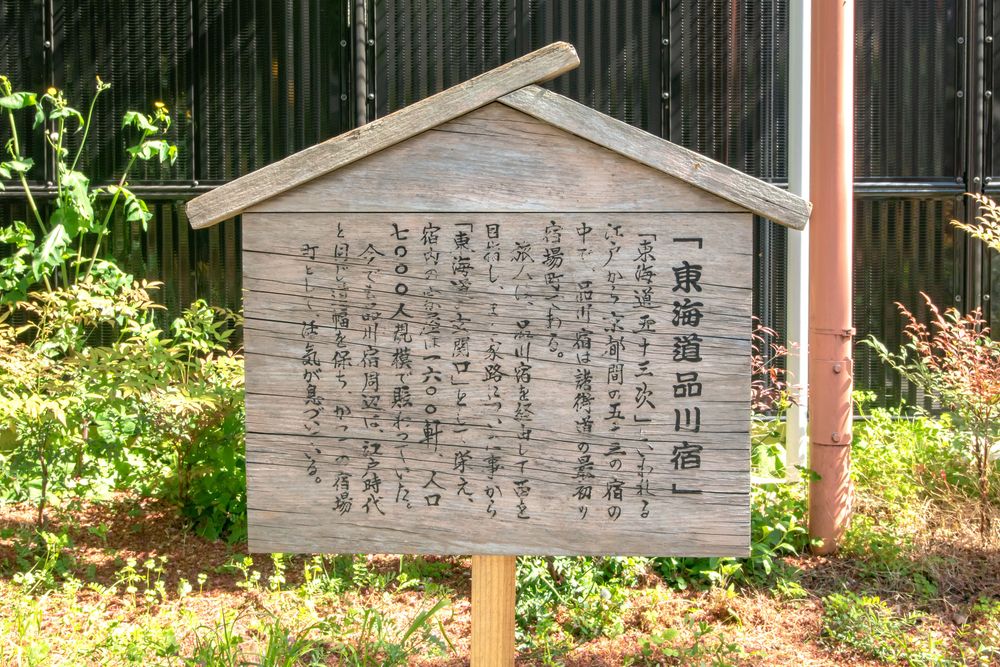 「東海道品川宿」
「東海道五十三次」といわれる
江戸から京都間の五十三の宿の
中で、品川宿は諸街道の最初の
宿場町である。
旅人は、品川宿を経由して西を
目指し、また家路につく事から
「東海道の玄関口」として栄え、
宿内の家屋は一六〇〇軒、人口
七〇〇〇人規模で賑わっていた。
今でも品川宿周辺は、江戸時代
と同じ道幅を保ち、かつての宿場
町として活気が息づいている。